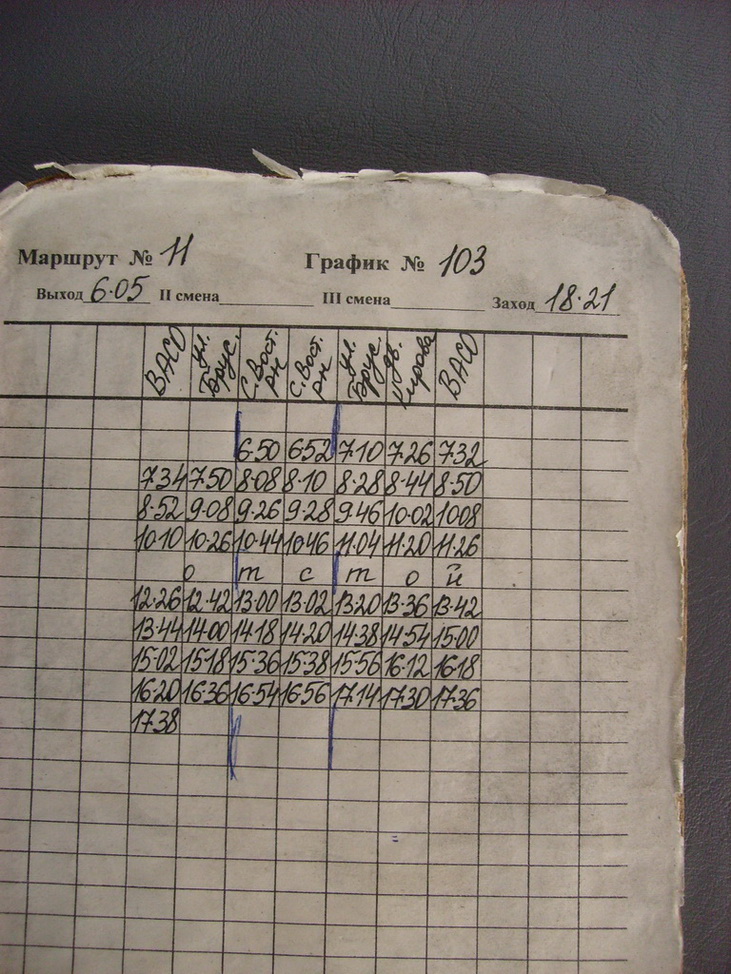 Маршрут № 11 График № 103
Выход 6·05 II смена III смена Заход 18·21
ВАСО ул. Брус. С. Вост. рн С. Вост. рн ул. Брус. ВАСО
6·50 6·52 7·10 7·26 7·32
7·34 7·50 8·08 8·10 8·28 8·44 8·50
8·52 9·08 9·26 9·28 9·46 10·02 10·08
10·10 10·26 10·44 10·46 11·04 11·20 11·26
о т с т о й
12·26 12·42 13·00 13·02 13·20 13·36 13·42
13·44 14·00 14·18 14·20 14·38 14·54 15·00
15·02 15·18 15·36 15·38 15·56 16·12 16·18
16·20 16·36 16·54 16·56 17·14 17·30 17·36
17·38